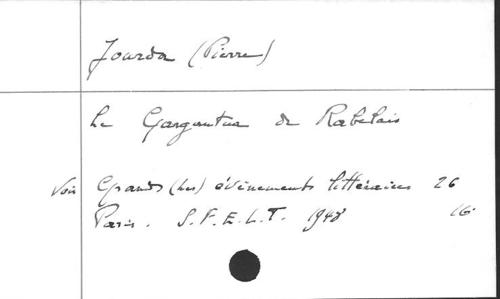 Jourda (Pierre)
Le Gargantua de Rabelais
Voir Grands (Les) évènements littéraires 26
Paris. S.F.E.L.T. 1948 16°